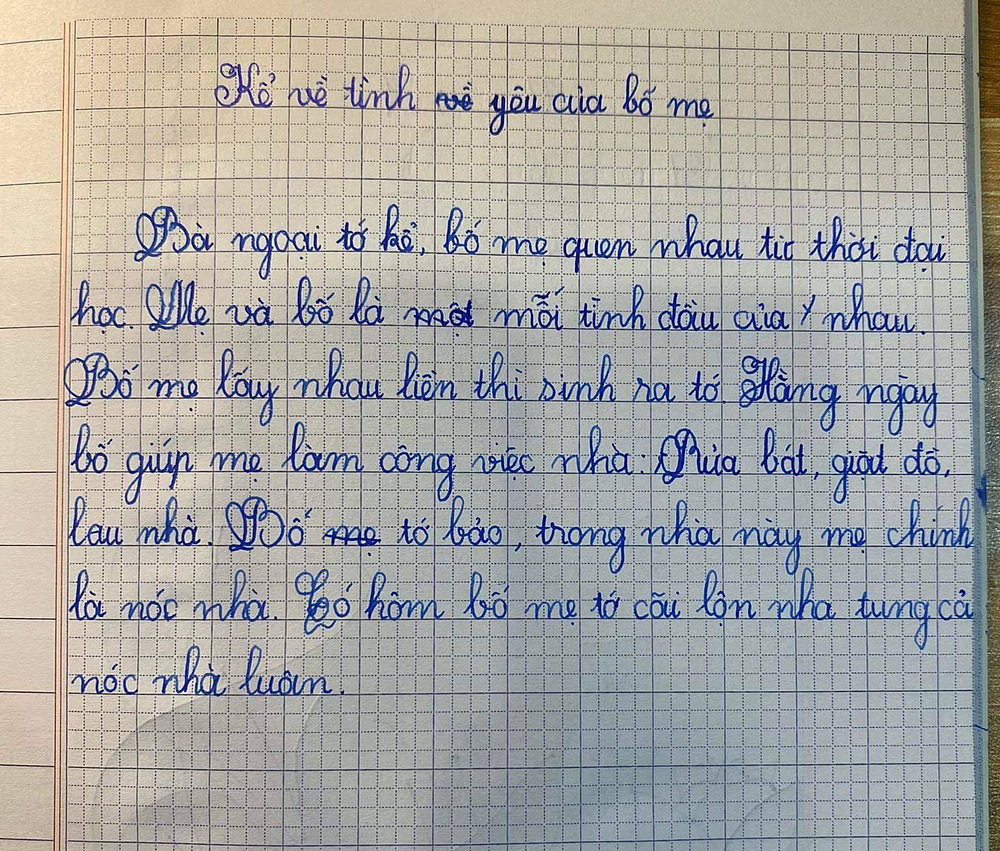 Kể về tình về yêu của bố mẹ
Bà ngoại tớ kể, bố mẹ quen nhau từ thời đại
học. Mẹ và bố là một mỗi tình đầu của nhau.
Bố mẹ lấy nhau liền thi sinh ra tớ. Hằng ngày
bố giúp mẹ làm công việc nhà: Rửa bát, giặt đồ,
lau nhà. Bố mẹ tớ bảo, trong nhà này mẹ chính
là nóc nhà. Có hôm bố mẹ tớ cãi lộn nha tung cả
nóc nhà luôn.